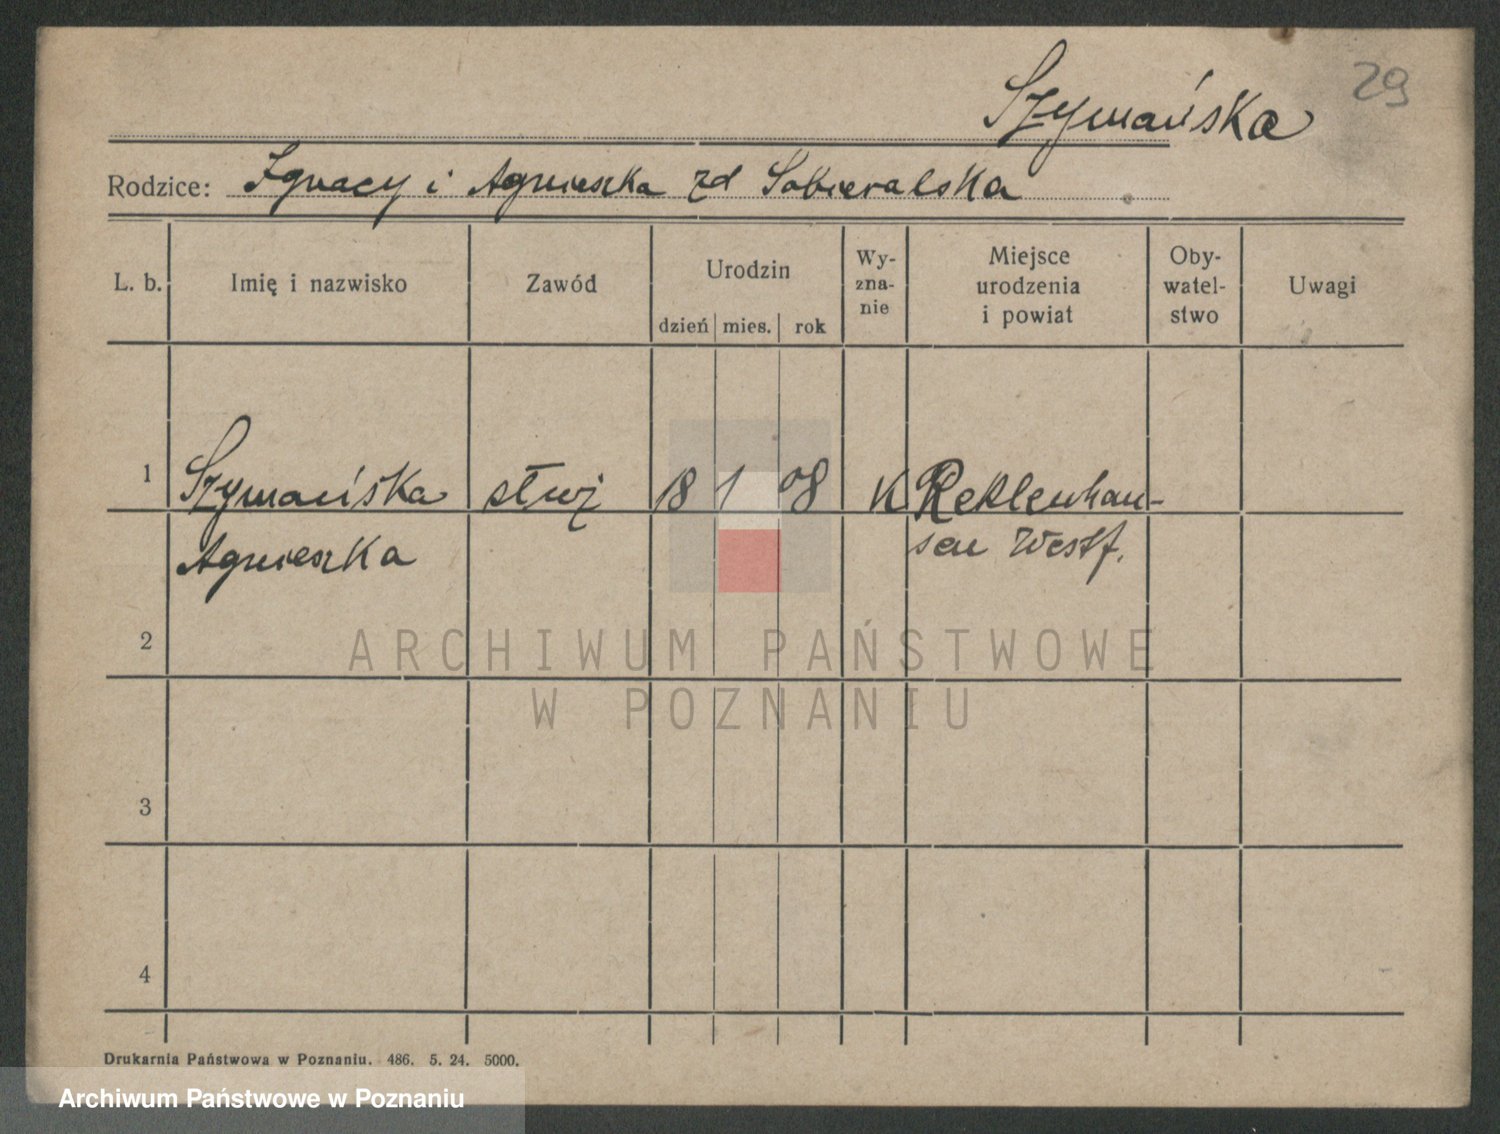 Szymańska
29
Rodzice: Ignacy i Agnieszka zd Sobieralska
L. b. Imię i nazwisko Zawód Urodzin dzień mies. rok Wy-zna-nie Miejsce urodzenia i powiat Oby-watel-stwo Uwagi
1 Szymańska służ 18 1 08 K Reklenhau-
Agnieszka sen Westf.
2
ARCHIWUM PAŃSTWOWE
W POZNANIU
3
4
Drukarnia Państwowa w Poznaniu. 486. 5. 24. 5000.
Archiwum Państwowe w Poznaniu